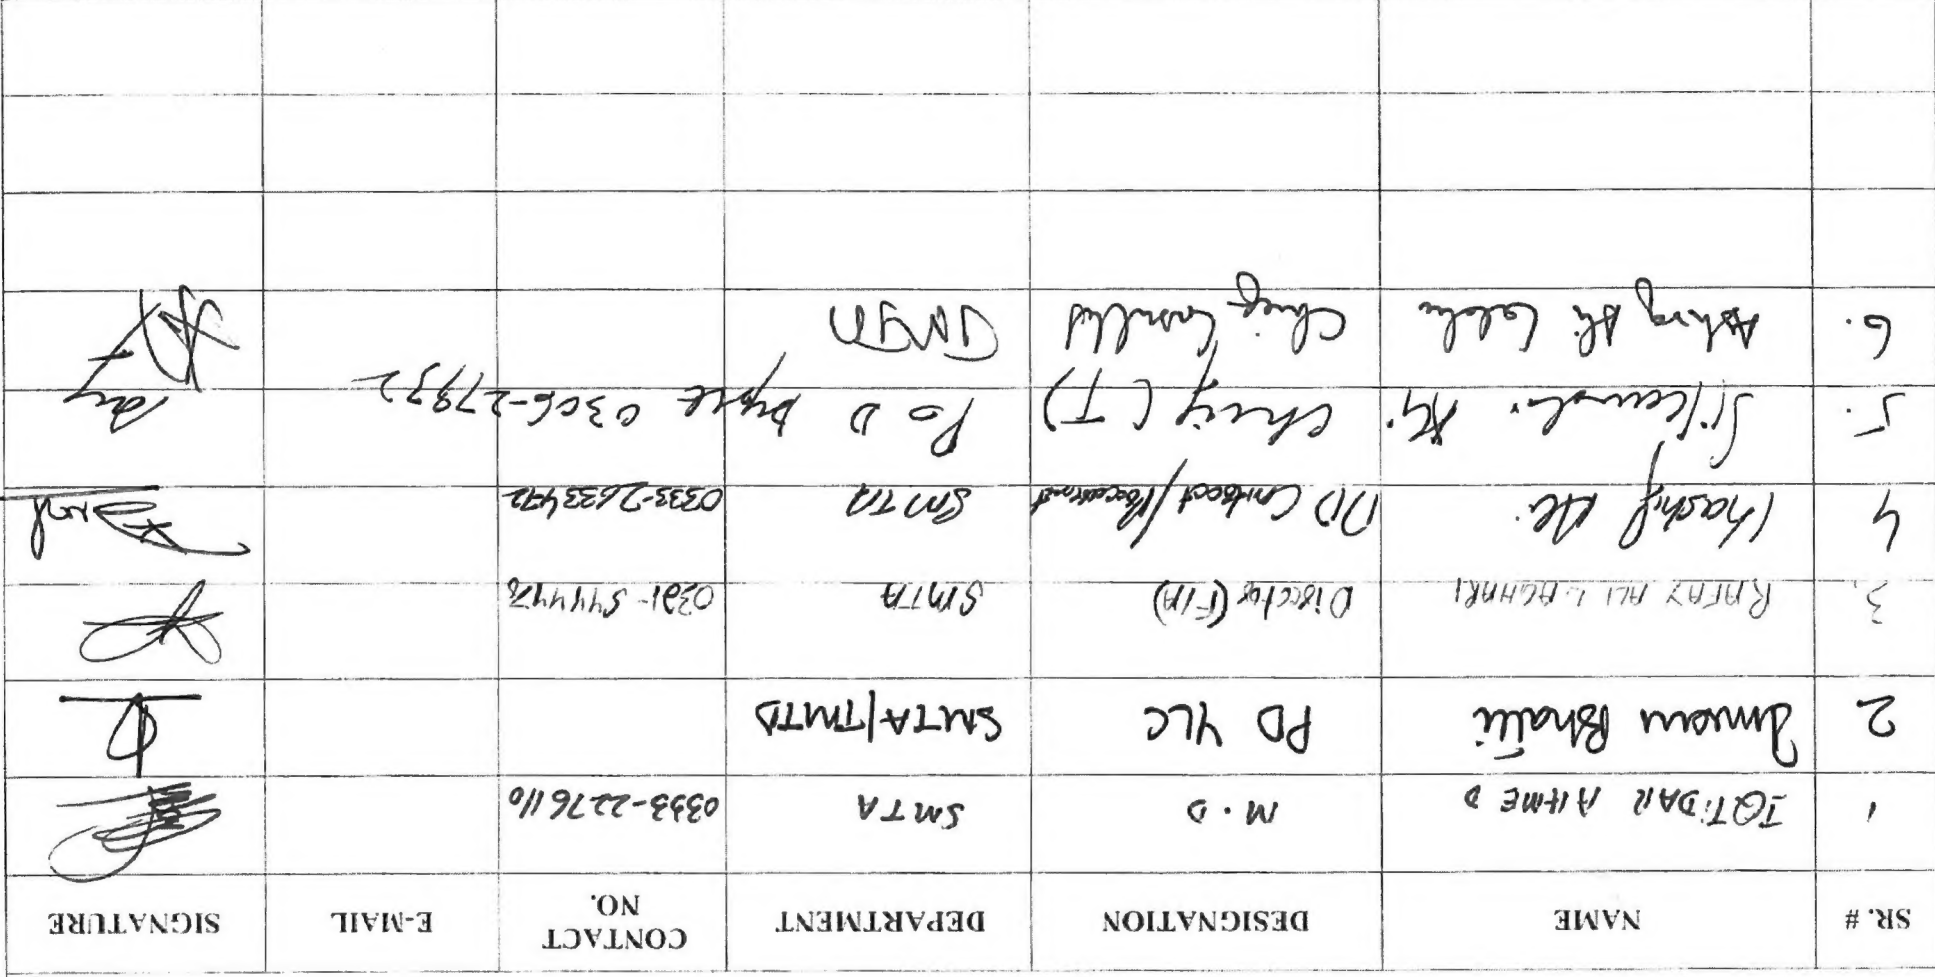 SR. # NAME DESIGNATION DEPARTMENT CONTACT NO. E-MAIL SIGNATURE
1 IQTIDAR AHMED M.D SMTA 0333-2276110
2 Imran Bhatti PD YLC SMTA/TMTD
3. RAFAY ALI LAGHARI Director (F/A) SMTA
4 Khashif Ali. DD Contract/Procurement SMTA 0333-2633472
5. Ali Chief (T) P&D 0306-27932
6. Ali Chief